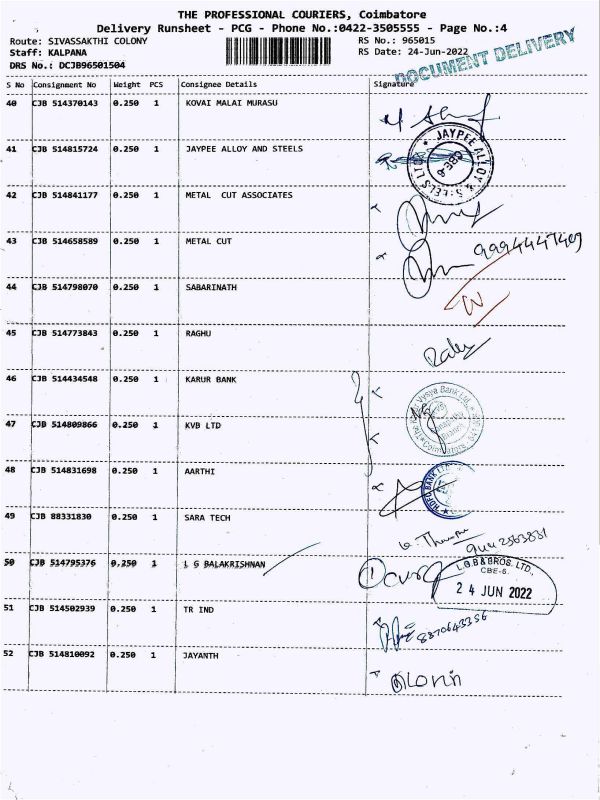 THE PROFESSIONAL COURIERS, Coimbatore
Delivery Runsheet - PCG - Phone No.:0422-3505555 - Page No.:4
Route: SIVASSAKTHI COLONY RS No.: 965015
Staff: KALPANA RS Date: 24-Jun-2022
DRS No.: DCJB96501504
DOCUMENT DELIVERY
S No Consignment No Weight PCS Consignee Details Signature
40 CJB 514370143 0.250 1 KOVAI MALAI MURASU
41 CJB 514815724 0.250 1 JAYPEE ALLOY AND STEELS
JAYPEE ALLOY &
42 CJB 514841177 0.250 1 METAL CUT ASSOCIATES
43 CJB 514658589 0.250 1 METAL CUT
9994447409
44 CJB 514798070 0.250 1 SABARINATH
45 CJB 514773843 0.250 1 RAGHU
46 CJB 514434548 0.250 1 KARUR BANK
Vysya Bank Ltd.
47 CJB 514809866 0.250 1 KVB LTD
48 CJB 514831698 0.250 1 AARTHI
HDFC BANK LTD
49 CJB 88331830 0.250 1 SARA TECH
50 CJB 514795376 0.250 1 L G BALAKRISHNAN
L.G.B & BROS. LTD.,
CBE-6.
24 JUN 2022
51 CJB 514502939 0.250 1 TR IND
8870643356
52 CJB 514810092 0.250 1 JAYANTH